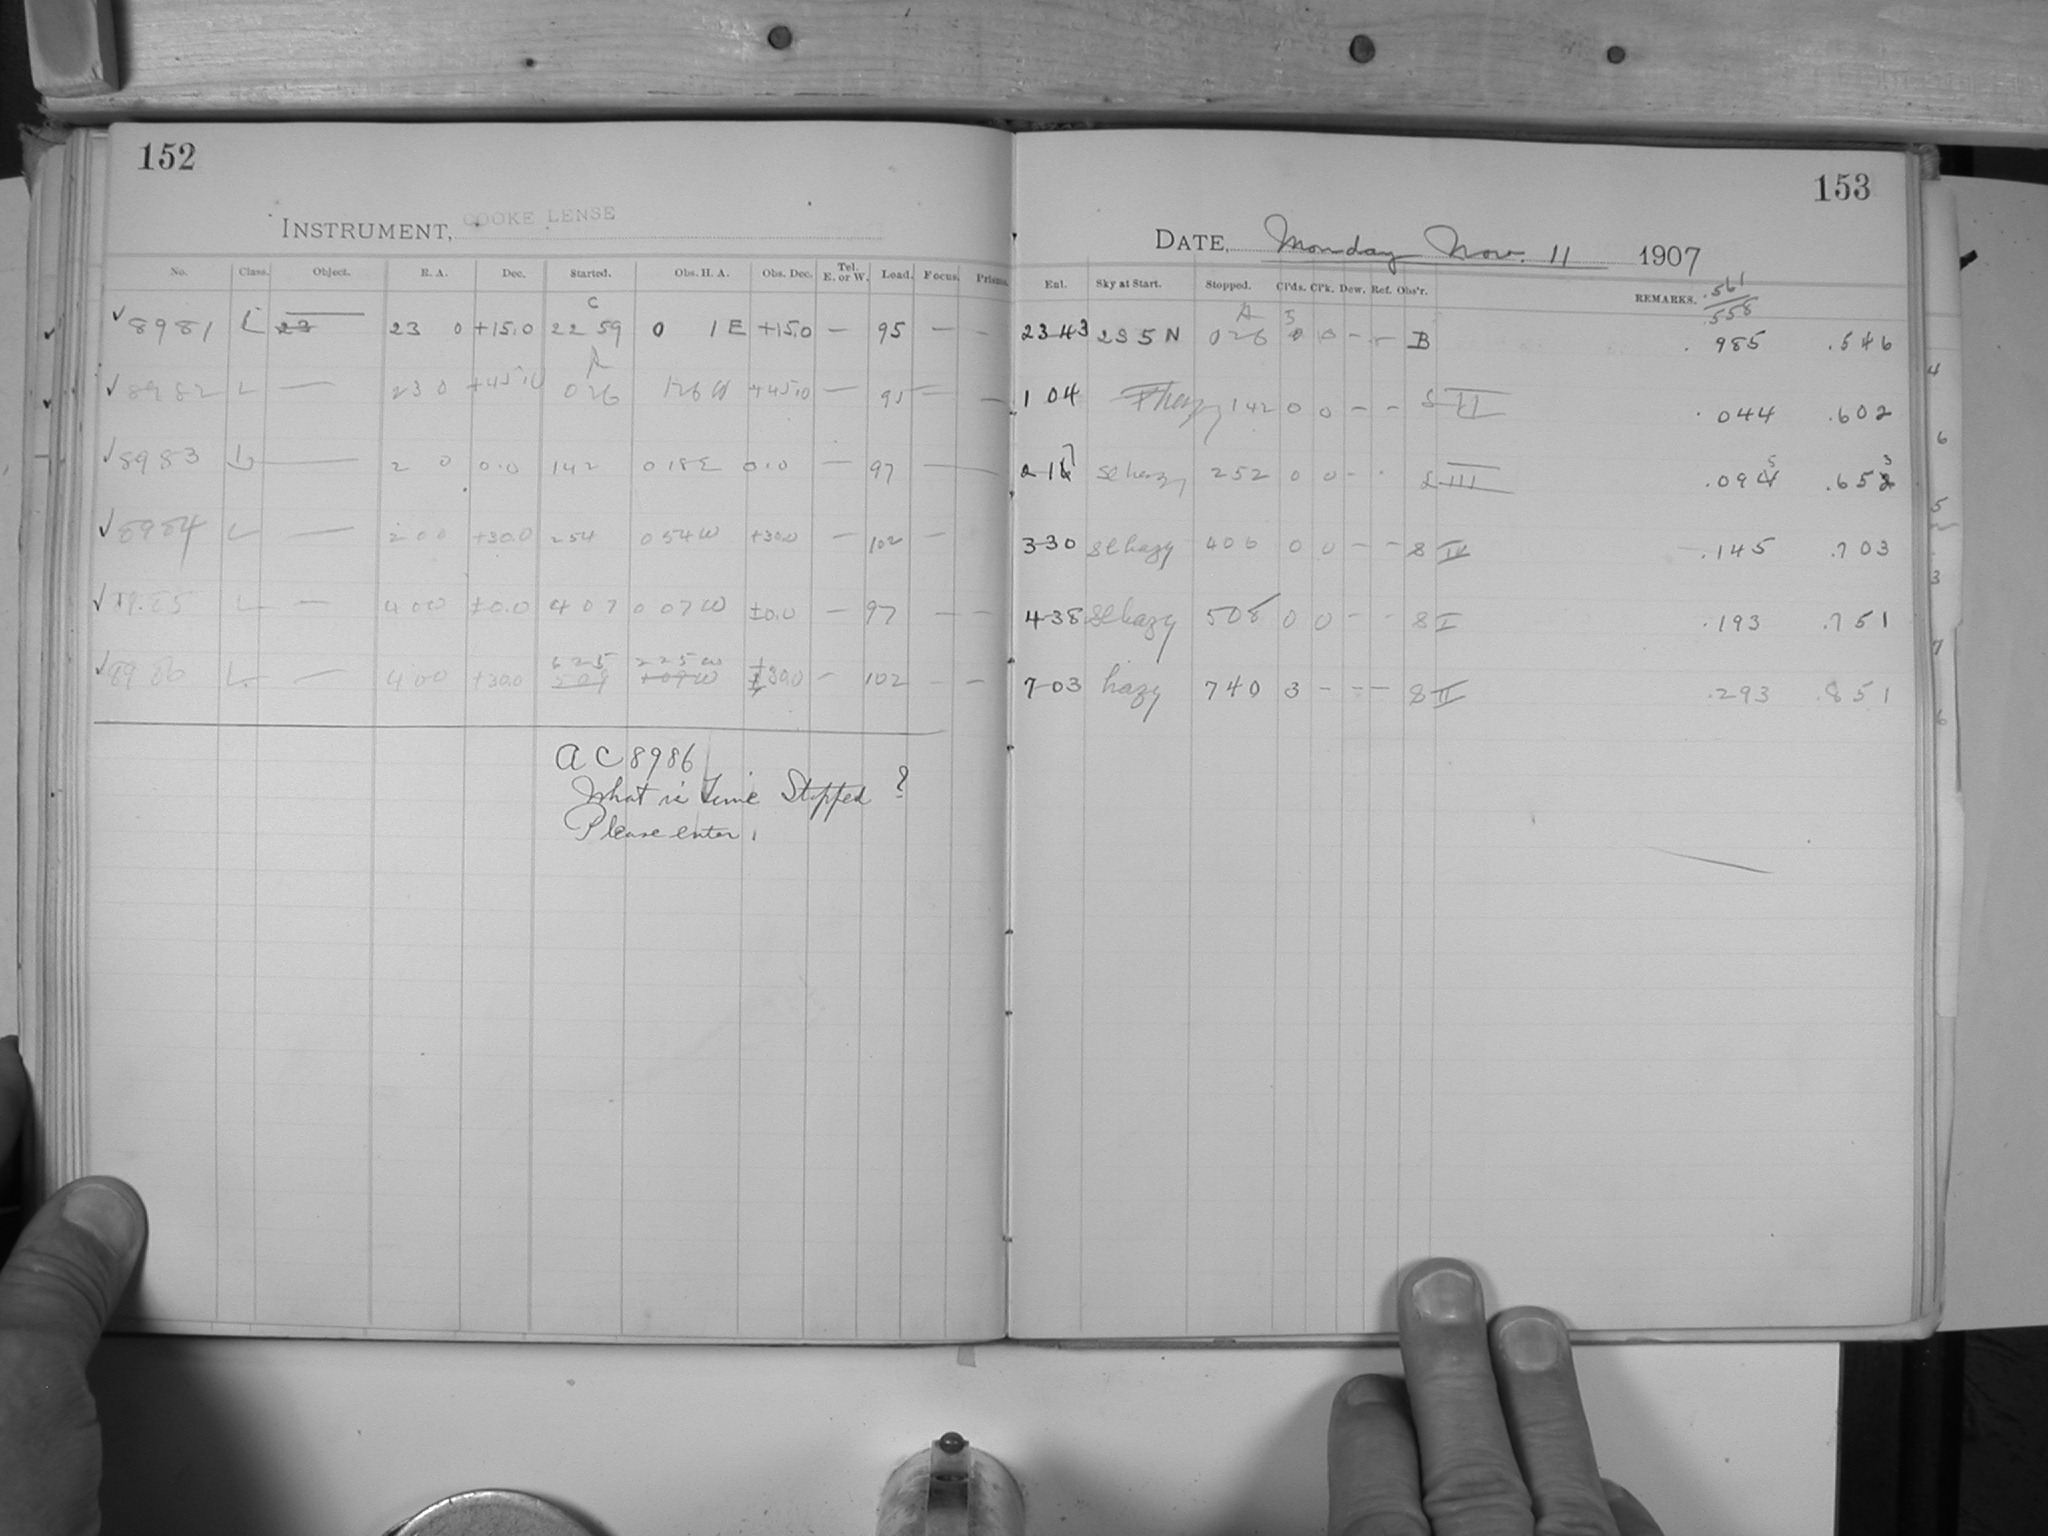 152
INSTRUMENT, COOKE LENSE
No. Class. Object. R. A. Dec. Started. Obs. H. A. Obs. Dec. Tel. E. or W. Load. Focus. Prisms.
C
✓ 8981 L 23 23 0 +15.0 22 59 0 1 E +15.0 — 95 — —
A
✓ 8982 L — 23 0 +45.0 0 26 1 26 W +45.0 — 95 — —
✓ 8983 L — 2 0 0.0 1 42 0 18 E 0.0 — 97 — —
✓ 8984 L — 2 00 +30.0 2 54 0 54 W +30.0 — 102 —
✓ 8985 L — 4 00 ±0.0 4 07 0 07 W ±0.0 — 97 — —
6 25 2 25 W +
✓ 8986 L. — 4 00 +30.0 5 09 1 09 W 30.0 — 102 — —
A C 8986
What is time Stopped ?
Please enter.
153
DATE, Monday Nov. 11 1907
Eul. Sky at Start. Stopped. Cl'ds. Cl'k. Dew. Ref. Obs'r. REMARKS. .561
.558
A 5
23 43 23 5 N 0 26 0 0 — — B .985 .546
1 04 1 42 0 0 — — S II .044 .602
7 5 3
2 16 Sl hazy 2 52 0 0 — S III .094 .652
3 30 Sl hazy 4 06 0 0 — — S IV .145 .703
4 38 Sl hazy 5 08 0 0 — — S I .193 .751
7 03 hazy 7 40 3 — — — S II .293 .851